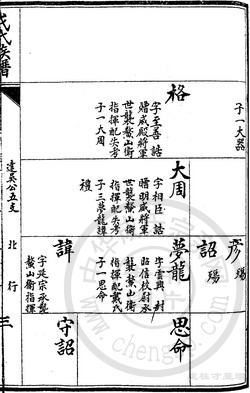 子一大器
格
字至善 誥
贈威殿將軍
世襲鰲山衛
指揮配失考
子一大周
大周
字相臣 誥
贈明威將軍
世襲鰲山衛
指揮配失考
子三夢龍 諱
禮
彥 殤
詔 殤
夢龍
字雲興 封
昭信校尉承
襲鰲山衛
指揮配戴氏
子一思命
諱
字廷宗承襲
鰲山衛指揮
思命
守詔
氏族譜
達吳公五支
北行
三